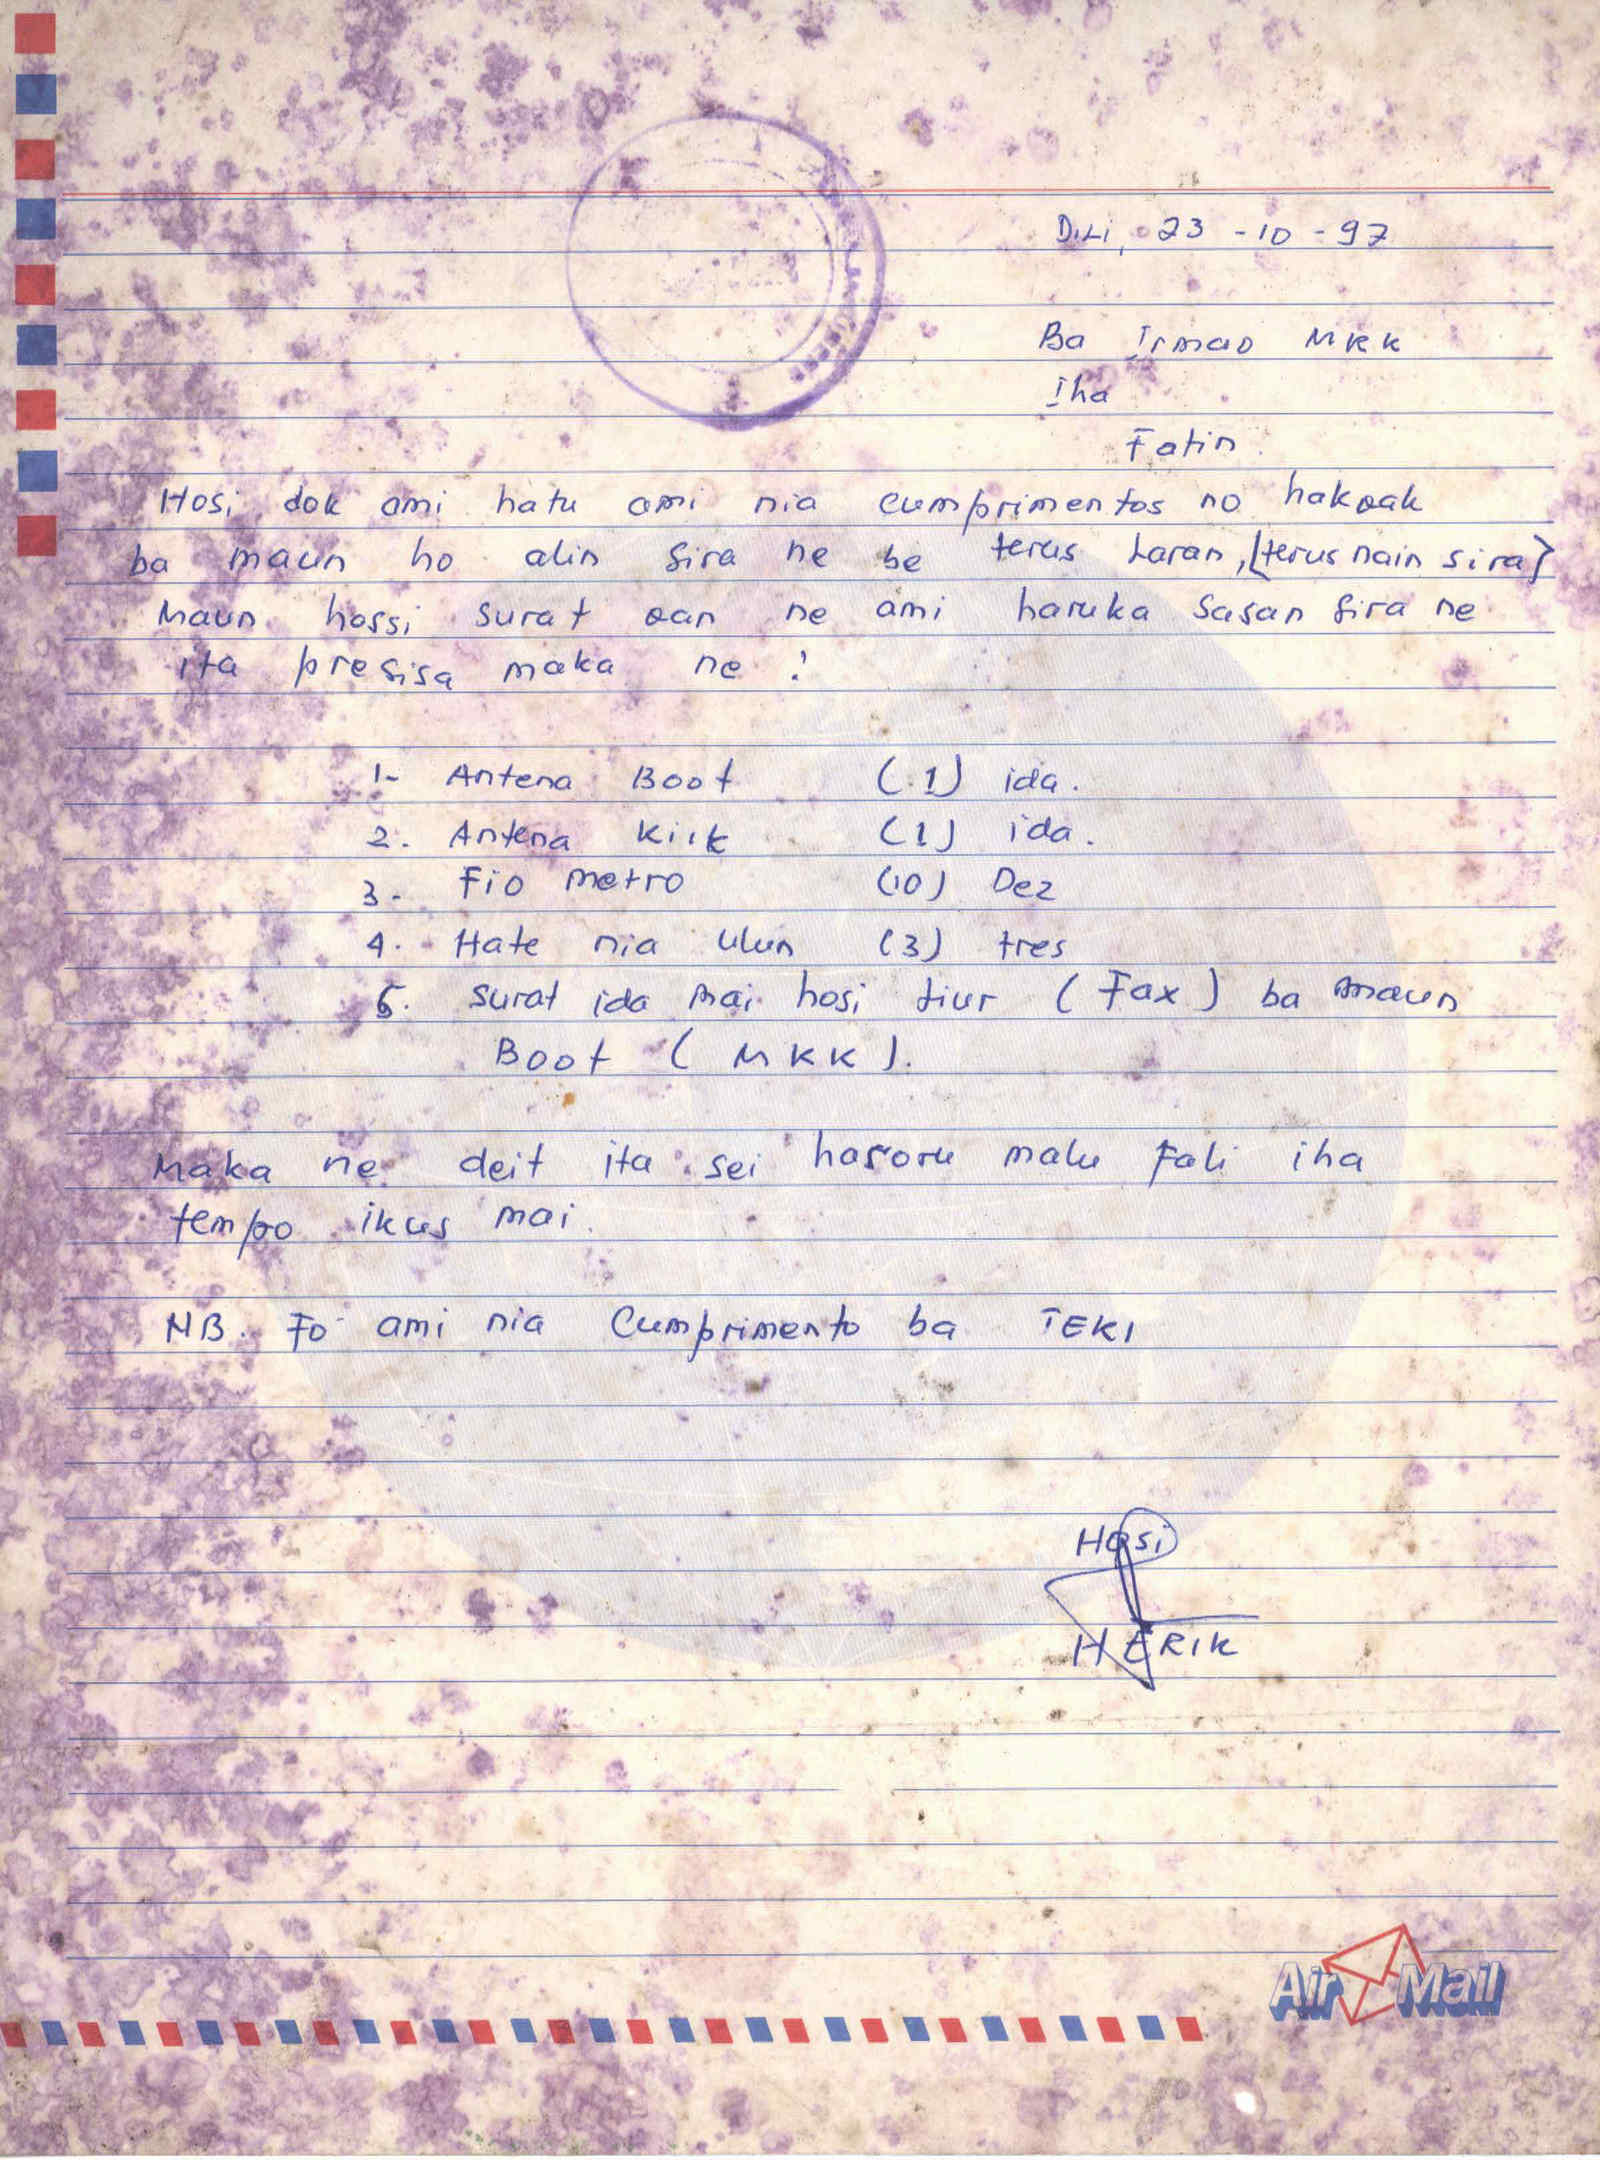 Dili, 23 - 10 - 97
Ba Irmao MKK
Iha
Fatin.
Hosi dok ami hatu ami nia cumprimentos no hakoak
ba maun ho alin sira ne be terus laran, [terus nain sira]
Maun hossi surat oan ne ami haruka sasan sira ne
ita presisa maka ne :
1- Antena Boot (1) ida.
2. Antena kiik (1) ida.
3- Fio metro (10) Dez
4. Hate nia ulun (3) tres
5. surat ida mai hosi tiur (Fax) ba maun
Boot (MKK).
Maka ne deit ita sei hasoru malu fali iha
tempo ikus mai.
NB. Fo ami nia Cumprimento ba TEKI
Hosi
HERIK
Air Mail